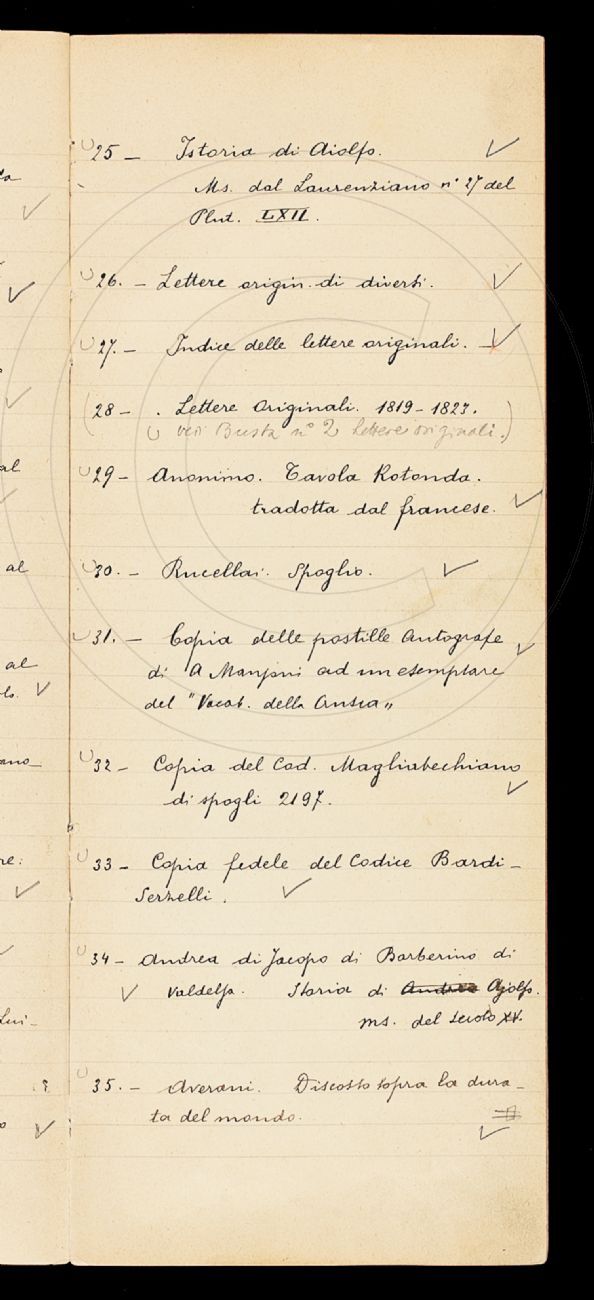 25 — Istoria di Aiolfo.
Ms. dal Laurenziano n° 27 del
Plut. LXII.
26. — Lettere origin. di diversi.
27. — Indice delle lettere originali. —
(28 — . Lettere Originali. 1819-1823.)
vedi Busta n° 2 Lettere originali.)
29 — Anonimo. Tavola Rotonda.
tradotta dal francese.
30. — Rucellai. Spoglio.
31. — Copia delle postille autografe
di A Manzoni ad un esemplare
del "Vocab. della Crusca„
32 — Copia del Cod. Magliabechiano
di spogli 2197.
33 — Copia fedele del Codice Bardi-
Serzelli.
34 — Andrea di Jacopo di Barberino di
Valdelsa. Storia di Andrea Ajolfo.
ms. del secolo XV.
35. — Averani. Discosto sopra la dura-
ta del mondo.